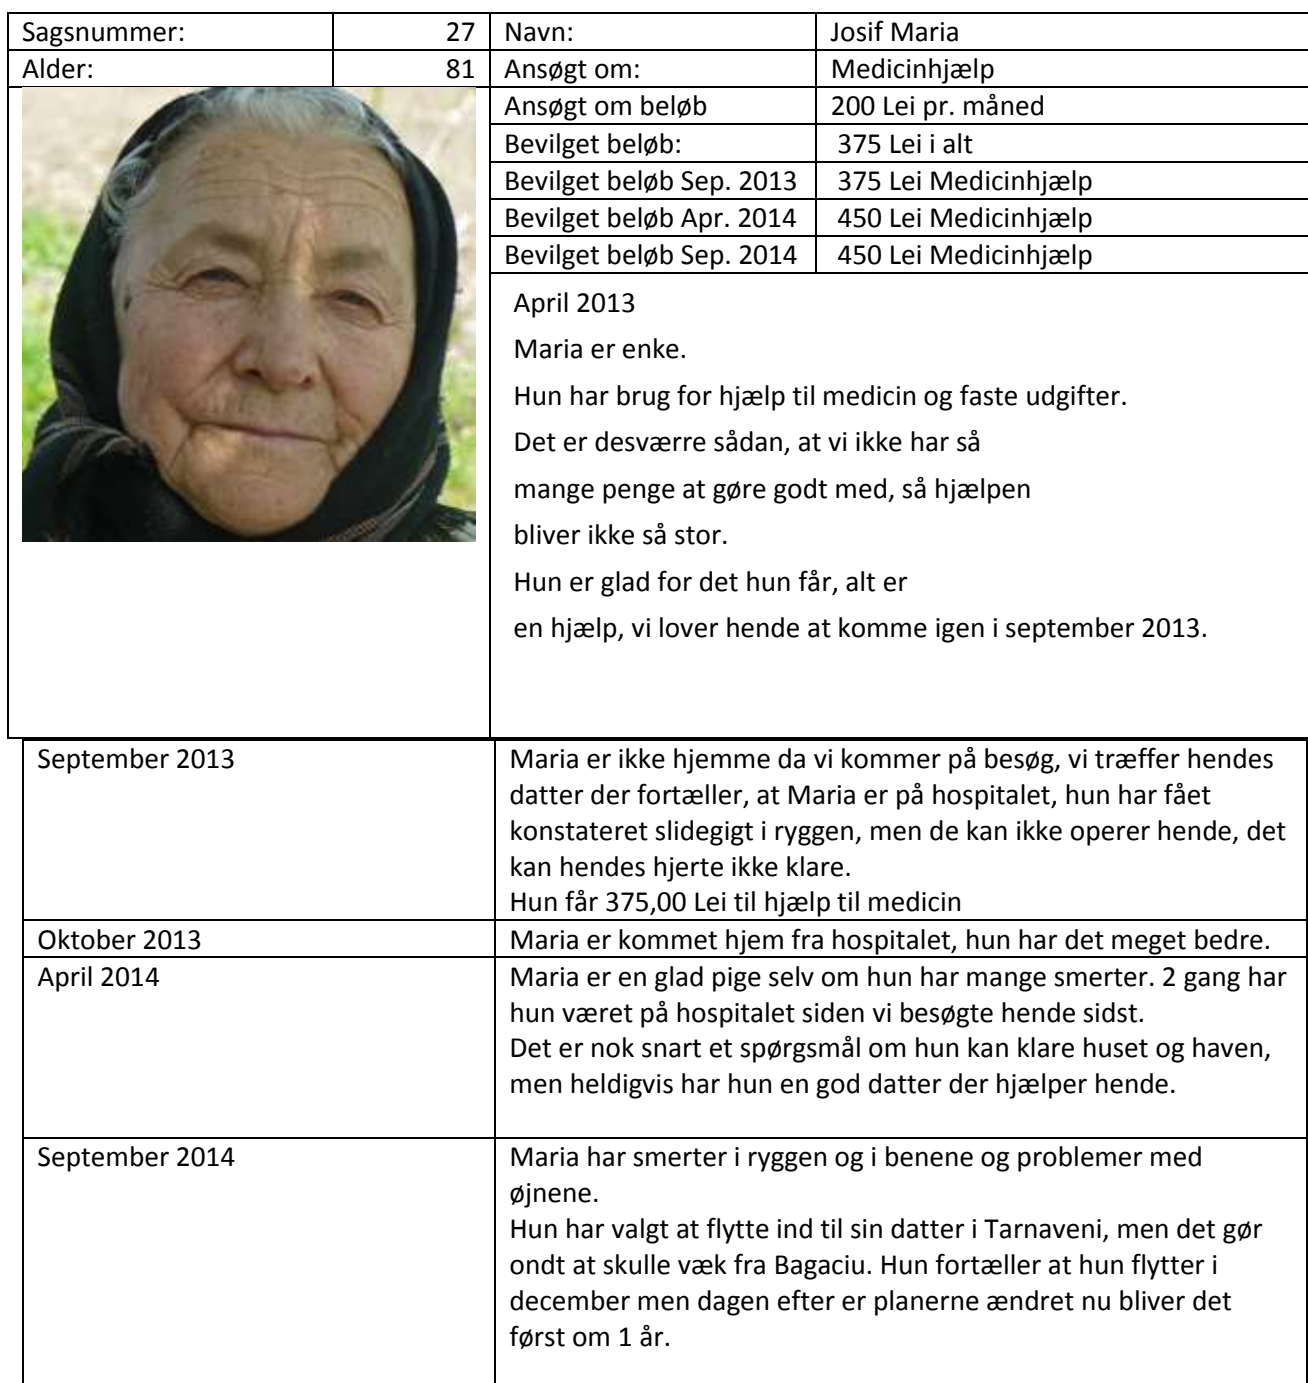 Sagsnummer: 27 Navn: Josif Maria
Alder: 81 Ansøgt om: Medicinhjælp
Ansøgt om beløb 200 Lei pr. måned
Bevilget beløb: 375 Lei i alt
Bevilget beløb Sep. 2013 375 Lei Medicinhjælp
Bevilget beløb Apr. 2014 450 Lei Medicinhjælp
Bevilget beløb Sep. 2014 450 Lei Medicinhjælp
April 2013
Maria er enke.
Hun har brug for hjælp til medicin og faste udgifter.
Det er desværre sådan, at vi ikke har så
mange penge at gøre godt med, så hjælpen
bliver ikke så stor.
Hun er glad for det hun får, alt er
en hjælp, vi lover hende at komme igen i september 2013.
September 2013 Maria er ikke hjemme da vi kommer på besøg, vi træffer hendes
datter der fortæller, at Maria er på hospitalet, hun har fået
konstateret slidegigt i ryggen, men de kan ikke operer hende, det
kan hendes hjerte ikke klare.
Hun får 375,00 Lei til hjælp til medicin
Oktober 2013 Maria er kommet hjem fra hospitalet, hun har det meget bedre.
April 2014 Maria er en glad pige selv om hun har mange smerter. 2 gang har
hun været på hospitalet siden vi besøgte hende sidst.
Det er nok snart et spørgsmål om hun kan klare huset og haven,
men heldigvis har hun en god datter der hjælper hende.
September 2014 Maria har smerter i ryggen og i benene og problemer med
øjnene.
Hun har valgt at flytte ind til sin datter i Tarnaveni, men det gør
ondt at skulle væk fra Bagaciu. Hun fortæller at hun flytter i
december men dagen efter er planerne ændret nu bliver det
først om 1 år.